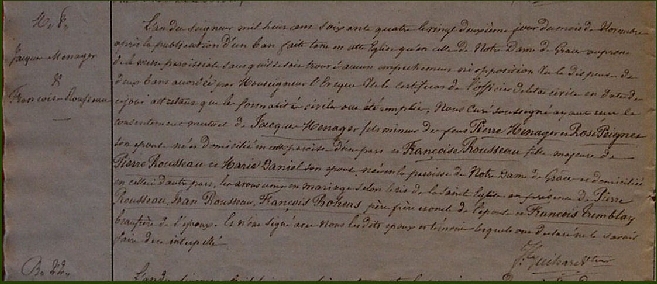 Jacques Menager
&
Françoise Rousseau
L'an du Seigneur mil huit cent soixante quatre le vingt deuxième jour du mois de Novembre
après la publication d'un ban faite tant en cette Eglise qu'en celle de Notre Dame de Grâce au prône
de la messe paroissiale sans qu'il se soit trouvé aucun empêchement ni opposition Vu la dispense de
deux bans accordée par Monseigneur l'Evêque Vu le certificat de l'officier de l'état civil en date de
ce jour attestant que les formalités civiles ont été remplies, Nous Curé soussigné avons reçu le
consentement mutuel de Jacques Menager fils mineur de feus Pierre Ménager et Rose Peignet
son épouse né et domicilié en cette paroisse d'une part et Françoise Rousseau fille majeure de
Pierre Rousseau et Marie Daniel son épouse née en la paroisse de Notre Dame de Grâce et domiciliée
en celle ci d'autre part, les avons unis en mariage selon le rit de la Sainte Eglise en présence de Pierre
Rousseau, Jean Rousseau, François père frère et oncle de l'épouse et François Tremblay
beau frère de l'époux. Ils n'ont signé avec Nous les dits époux et témoins lesquels ont déclaré ne le savoir
faire de ce interpellés.
L'an du